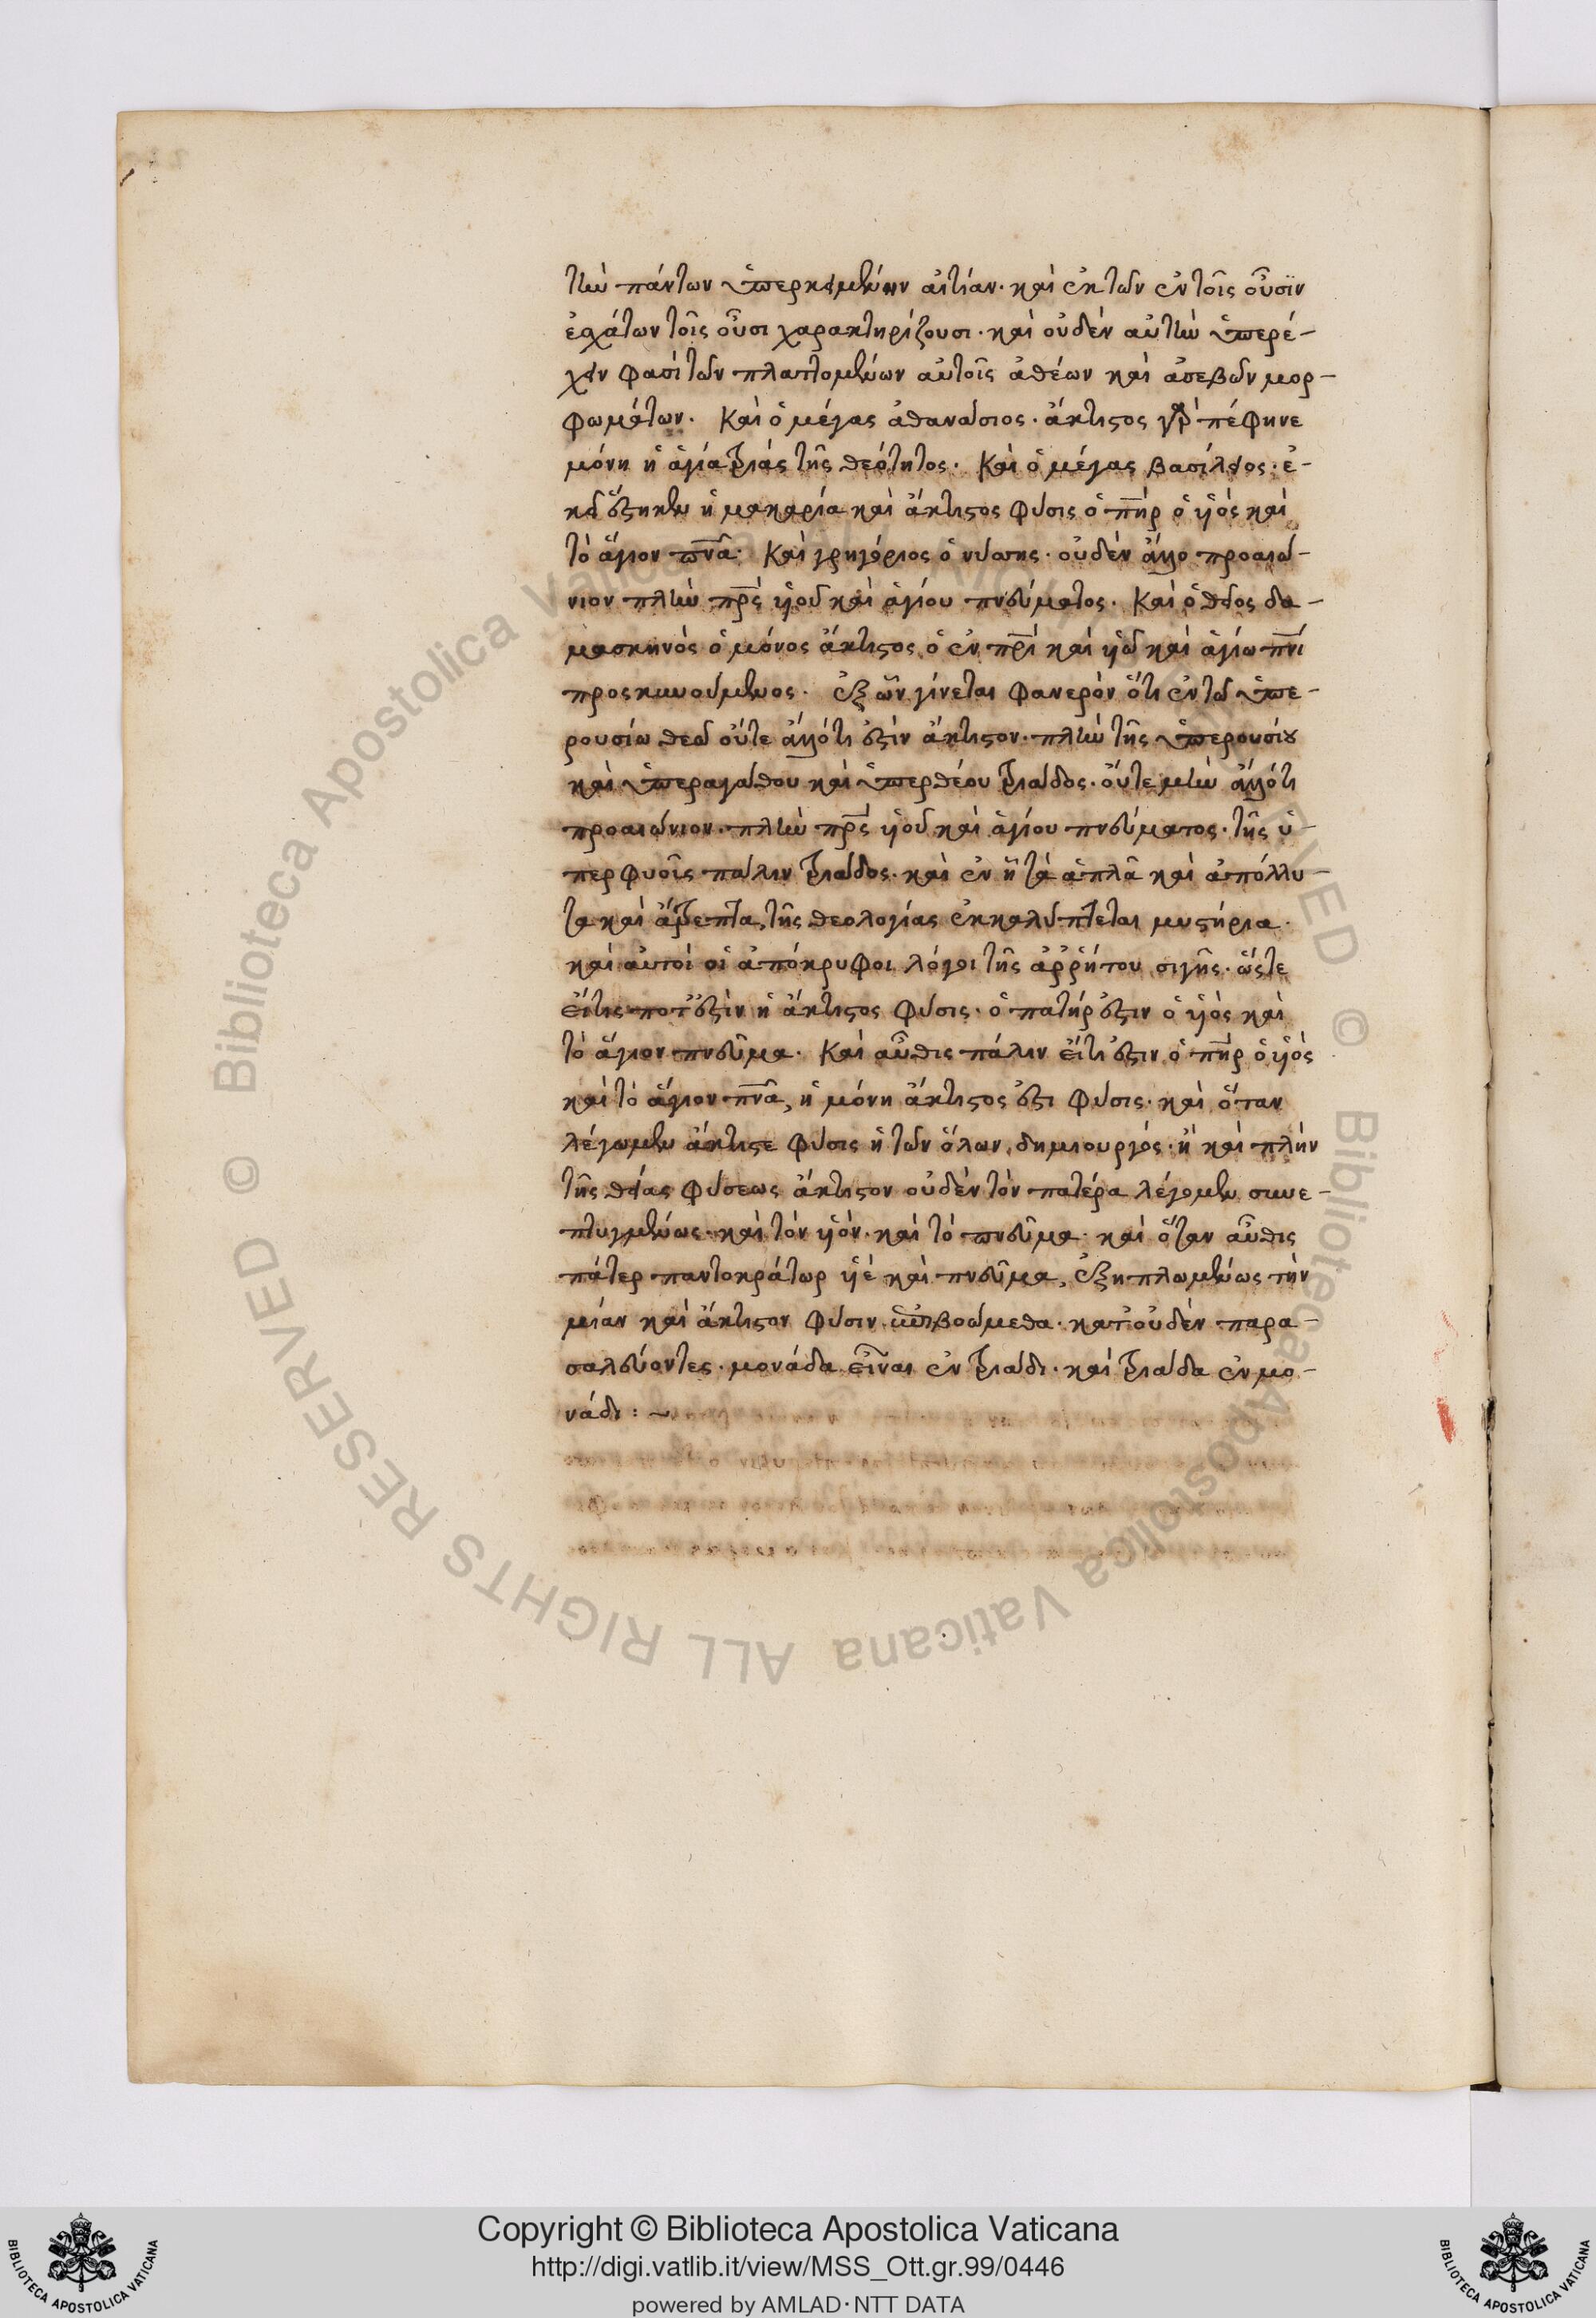 τὴν πάντων ὑπερκειμένην αἰτίαν· καὶ ἐκ τῶν ἐν τοῖς οὖσϊν
ἐχάτων τοῖς οὖσι χαρακτηρίζουσι· καὶ οὐδὲν αὐτὴν ὑπερέ-
χειν φασὶ τῶν πλαττομένων αὐτοῖς ἀθέων καὶ ἀσεβῶν μορ-
φωμάτων. Καὶ ὁ μέγας ἀθανάσιος· ἄκτιστος γὰρ πέφηνε
μόνη ἡ ἁγία τριὰς τῆς θεότητος. Καὶ ὁ μέγας βασίλειος· ἐ-
κεῖ ἔστηκεν ἡ μακαρία καὶ ἄκτιστος φύσις ὁ πη̅ρ ὁ υἱὸς καὶ
τὸ ἅγιον πν̅α· Καὶ γρηγόριος ὁ νύσσης· οὐδὲν ἄλλο προαιώ-
νιον πλὴν πρ̅ς υἱοῦ καὶ ἁγίου πνεύματος. Καὶ ὁ θεῖος δα-
μασκηνὸς ὁ μόνος ἄκτιστος ὁ ἐν πρ̅ι καὶ υἱῶ καὶ ἁγίω πν̅ι
προσκυνούμενος. ἐξ ὧν γίνεται φανερὸν ὅτι ἐν τῶ ὑπε-
ρουσίω θεῶ οὔτε ἄλλό τι ἐστὶν ἄκτιστον· πλὴν τῆς ὑπερουσίου
καὶ ὑπεραγάθου καὶ ὑπερθέου τριάδος· οὔτε μὴν ἄλλό τι
προαιώνιον· πλὴν πρ̅ς υἱοῦ καὶ ἁγίου πνεύματος· τῆς ὑ-
περφυοῖς πάλιν τριάδος· καὶ ἐν ἧ τὰ ἁπλᾶ καὶ ἀπόλλυ-
τα καὶ ἄτρεπτα, τῆς θεολογίας ἐκκαλύπτεται μυστήρια·
καὶ αὐτοὶ οἱ ἀπόκρυφοι λόγοι τῆς ἀῤῥήτου σιγῆς· ὥστε
εἴτις ποτ' ἐστὶν ἡ ἄκτιστος φύσις· ὁ πατήρ ἐστιν ὁ υἱὸς καὶ
τὸ ἅγιον πνεῦμα. Καὶ αὖθις πάλιν εἴτι ἐστιν ὁ πη̅ρ ὁ υἱὸς
καὶ τὸ ἅγιον πν̅α, ἡ μόνη ἄκτιστος ἐστι φύσις· καὶ ὅταν
λέγωμεν ἄκτιστε φύσις ἡ τῶν ὅλων, δημιουργός· ἢ καὶ πλὴν
τῆς θείας φύσεως ἄκτιστον οὐδὲν τὸν πατέρα λέγομεν συνε-
πτυγμένως· καὶ τὸν υἱὸν· καὶ τὸ πνεῦμα· καὶ ὅταν αὖθις
πάτερ παντοκράτωρ υἱὲ καὶ πνεῦμα, ἐξηπλωμένως τὴν
μίαν καὶ ἄκτιστον φύσιν ἐπιβοώμεθα· κατ' οὐδὲν παρα-
σαλεύοντες· μονάδα εἶναι ἐν τριάδι· καὶ τριάδα ἐν μο-
νάδι : ~
Copyright © Biblioteca Apostolica Vaticana
http://digi.vatlib.it/view/MSS_Ott.gr.99/0446
powered by AMLAD·NTT DATA
BIBLIOTECA APOSTOLICA VATICANA
BIBLIOTECA APOSTOLICA VATICANA
© Biblioteca Apostolica Vaticana ALL RIGHTS RESERVED
© Biblioteca Apostolica Vaticana ALL RIGHTS RESERVED